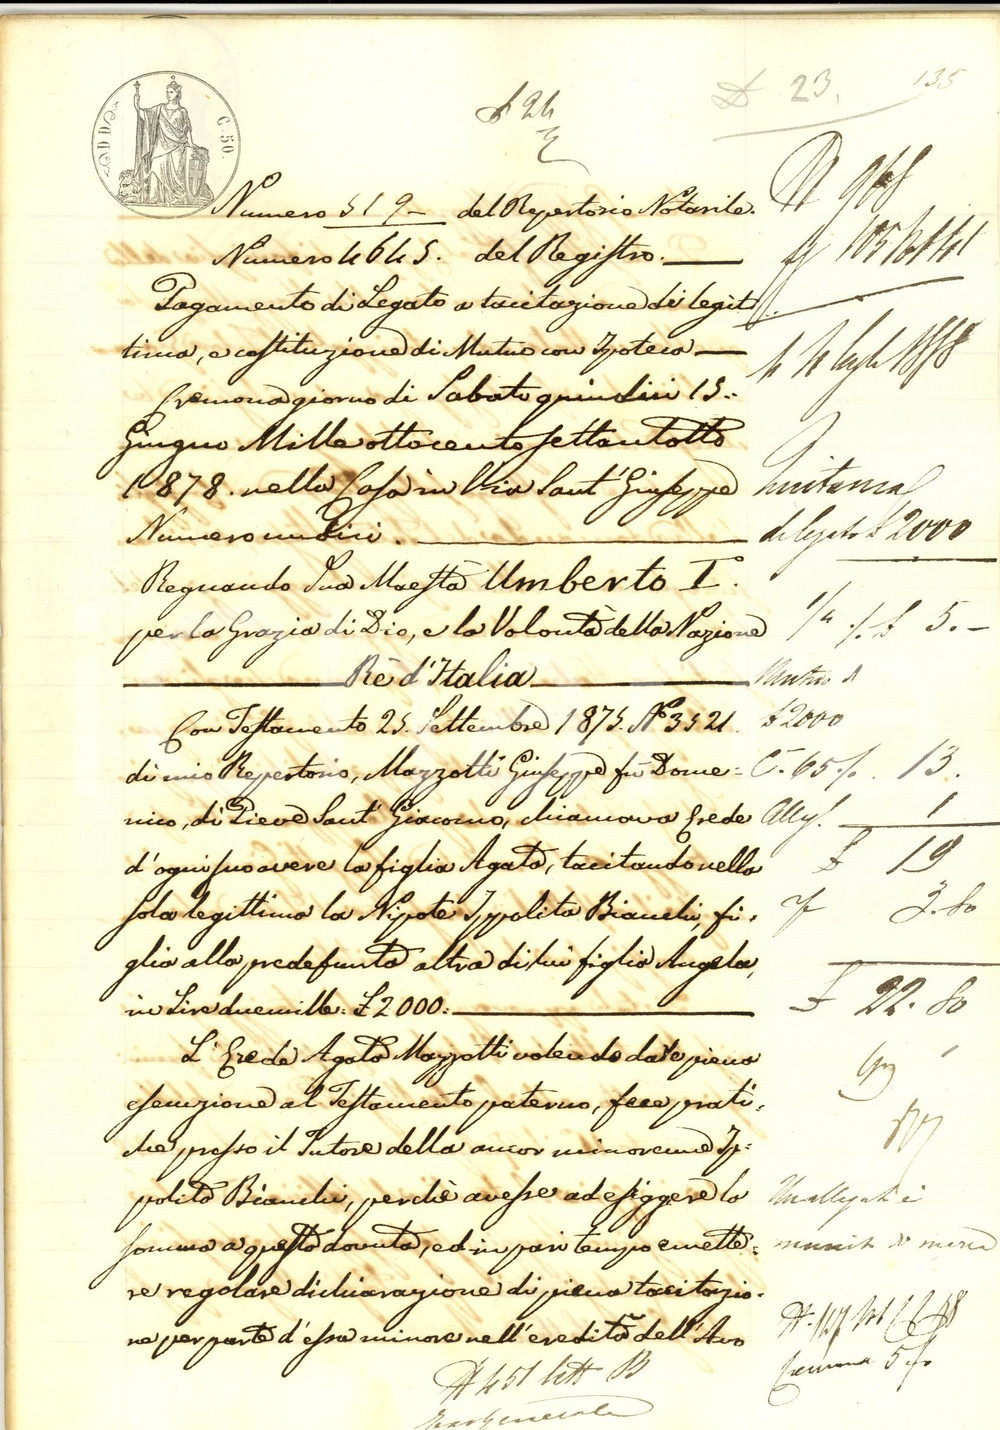 C. 50.
£ 24
N 23.
135
Numero 519 - del Repertorio Notarile.
Numero 4645. del Registro.
Pagamento di Legato a tacitazione di legit
tima, e costituzione di Mutuo con Ipoteca
Cremona giorno di Sabato quindici 15.
Giugno Mille ottocento settantotto
1878. nella Casa in Via Sant' Giuseppe
Numero undici.
Regnando Sua Maestà Umberto I.
per la Grazia di Dio, e la Volontà della Nazione
Rè d'Italia
Con Testamento 25. Settembre 1875. N° 3521.
di mio Repertorio, Mazzotti Giuseppe fù Dome=
nico, di Pieve Sant' Giacomo, chiamava Erede
d'ogni suo avere la figlia Agata, tacitando nella
sola legittima la Nipote Ippolita Bianchi, fi=
glia alla predefunta altra di lui figlia Angela,
in Lire duemille: £ 2000:
L'Erede Agata Mazzotti volendo dare piena
esecuzione al Testamento paterno, fece prati=
che presso il Tutore della ancor minorenne Ip=
polita Bianchi, perchè avesse ad esiggere la
somma a questa dovuta, ed in pari tempo emette=
re regolare dichiarazione di piena tacitazio=
ne per parte d'essa minore nell'eredità dell'Avo
N 968
4 luglio 1878
Quitanza
di legato £ 2000
£ 5. -
Mutuo di
£ 2000
C. 65 % 13.
Alleg. 1
£ 19
3.80
£ 22.80
Cremona
N 451 lett B